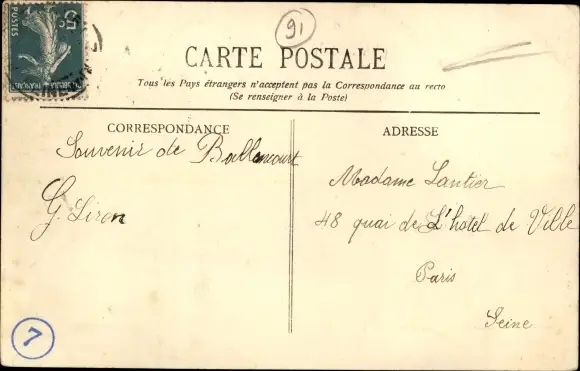 5c
POSTES
91
CARTE POSTALE
Tous les Pays étrangers n'acceptent pas la Correspondance au recto
(Se renseigner à la Poste)
CORRESPONDANCE
Souvenir de Ballancourt
G. Liron
ADRESSE
Madame Lantier
48 quai de L'hotel de Ville
Paris
Seine
7